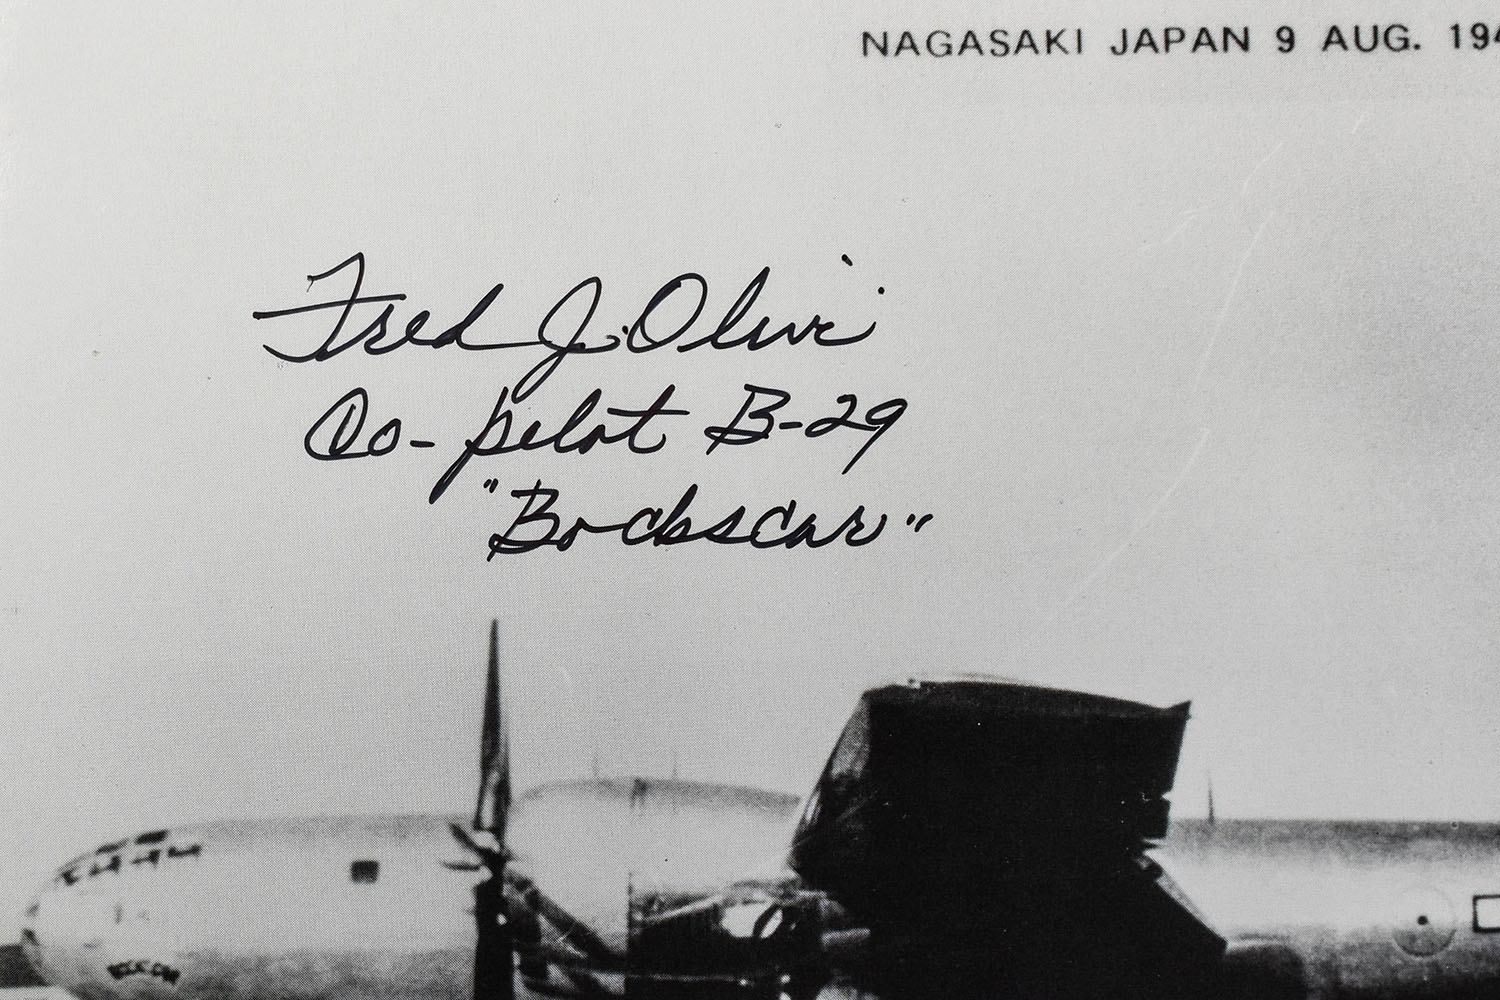 NAGASAKI JAPAN 9 AUG. 194
Fred J. Olivi
Co-pilot B-29
"Bockscar"